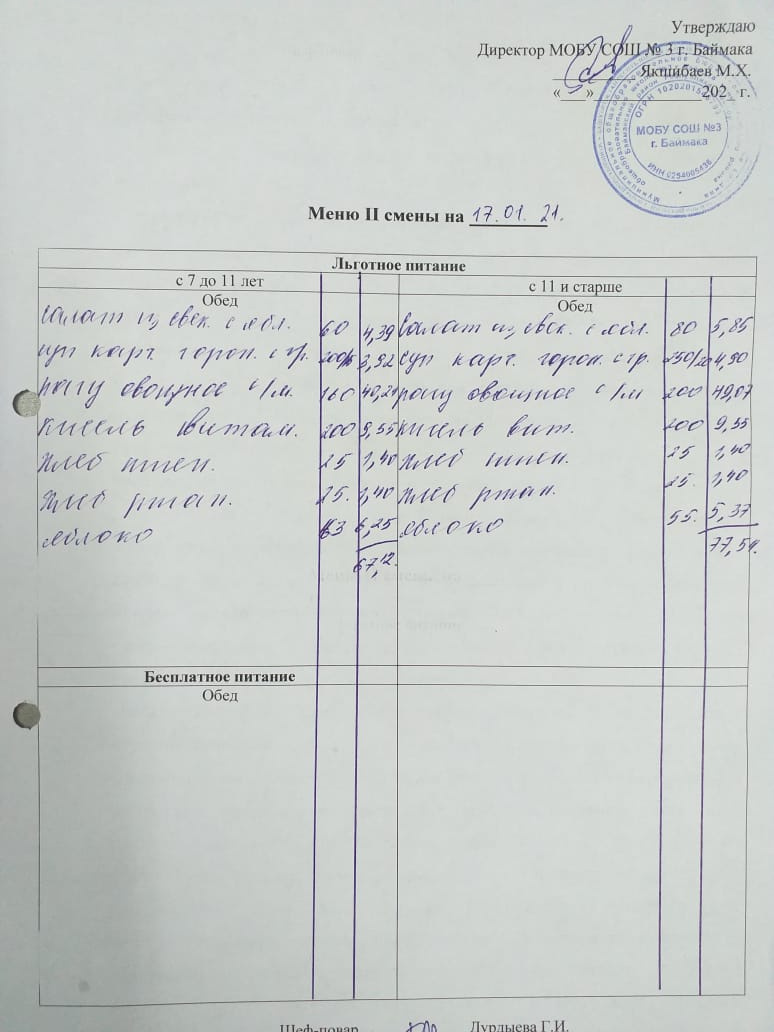 Утверждаю
Директор МОБУ СОШ № 3 г. Баймака
Якшибаев М.Х.
«___»______________202 г.
МОБУ СОШ №3
г. Баймака
ИНН 0254005436
Меню II смены на 17.01.21.
Льготное питание
с 7 до 11 лет с 11 и старше
Обед Обед
Салат из свек. с ябл. 60 4,39 Салат из свек. с ябл. 80 5,85
суп карт. горох. с гр. 3,92 суп карт. горох. с гр. 250/20 4,90
рагу овощное с/м. 160 40,21 рагу овощное с/м 200 49,07
кисель витам. 200 9,55 кисель вит. 200 9,55
хлеб пшен. 25 1,40 хлеб пшен. 25 1,40
хлеб ржан. 25. 1,40 хлеб ржан. 25. 1,40
яблоко 63 6,25 яблоко 55. 5,37
67,12. 77,54.
Бесплатное питание
Обед
Шеф-повар Дурдыева Г.И.